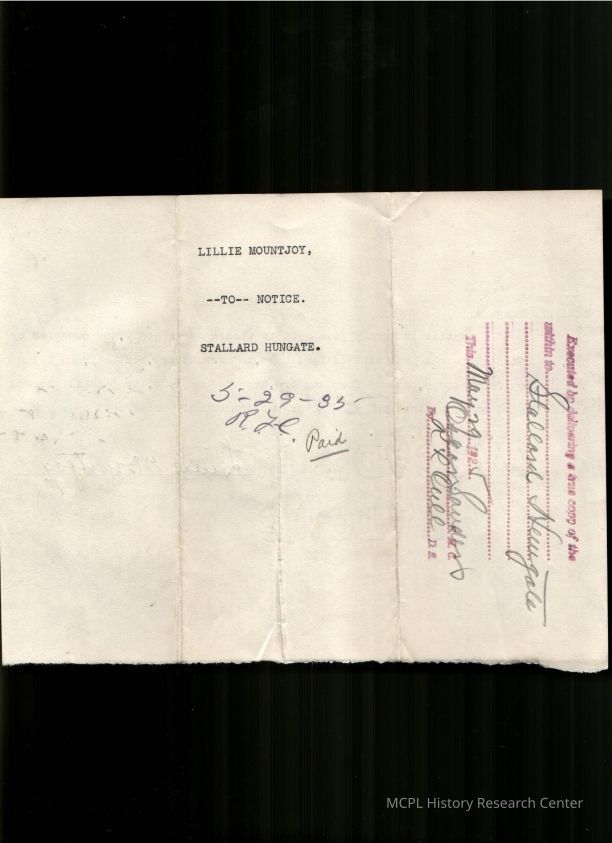 LILLIE MOUNTJOY,
--TO-- NOTICE.
STALLARD HUNGATE.
5-29-35
Paid
Executed by delivering a true copy of the
within to Stallard Hungate
This May 29 192
By D.S.
MCPL History Research Center